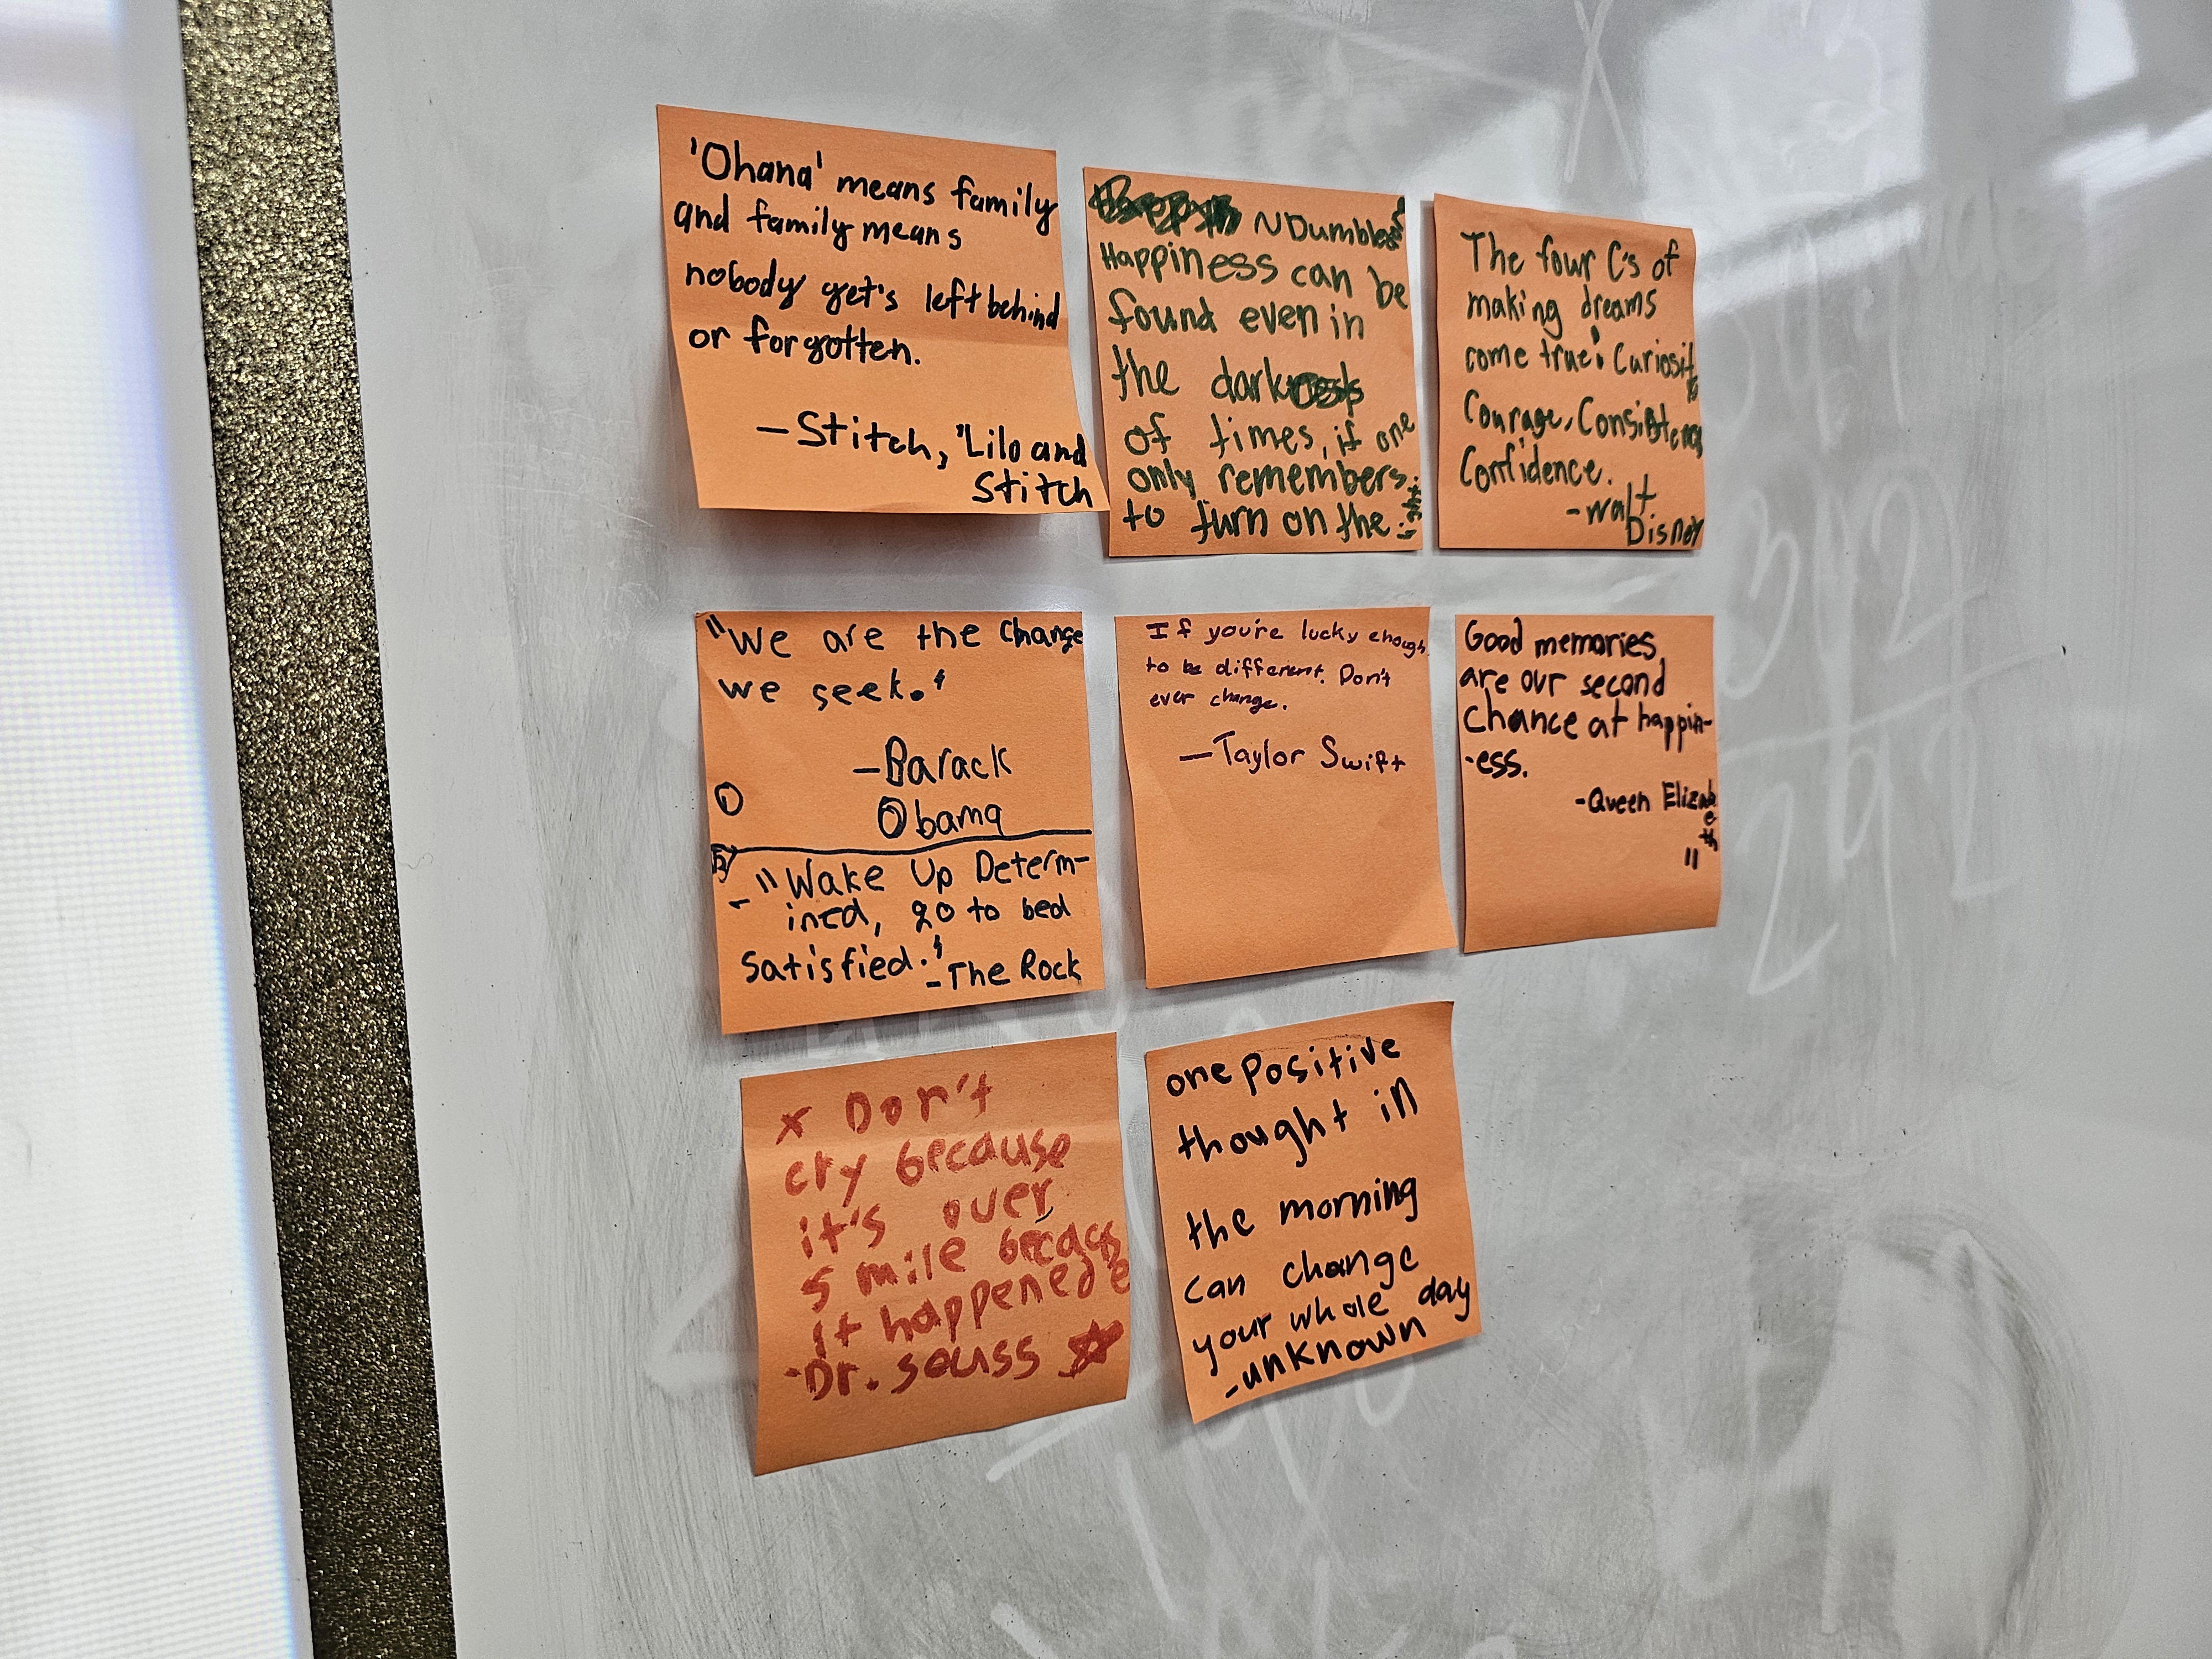 'Ohana' means family
and family means
nobody get's left behind
or forgotten.
— Stitch, 'Lilo and
Stitch
~Dumbledore
Happiness can be
found even in
the dark
of times, if one
only remembers
to turn on the light
The four C's of
making dreams
come true: Curiosity
Courage, Consistency
Confidence.
-Walt
Disney
"We are the Change
we seek."
—Barack
Obama
①
② "Wake Up Determ-
ined, go to bed
Satisfied." - The Rock
If you're lucky enough
to be different. Don't
ever change.
—Taylor Swift
Good memories
are our second
chance at happin-
-ess.
-Queen Elizabeth
II
x Don't
cry because
it's over
smile because
it happened
-Dr. seuss ☆
one positive
thought in
the morning
can change
your whole day
-unknown